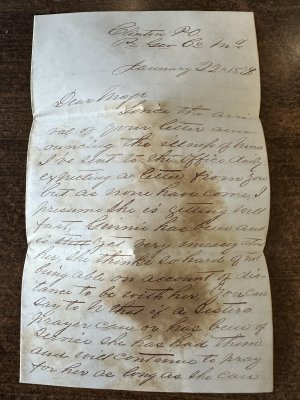 Clinton P.O.
Pr. Geo Co Md
January 22nd 1878
Dear
Since the arri
val of your letter ann
ouncing the illness of
I've sent to the Office daily
expecting a letter from you
but as none have come, I
presume she is getting well
fast. has been and
is yet very uneasy abt
her, she thinks so hard of not
being able on account of dis
tance to be with her. You can
say to her that if a Sisters
Prayer can or has been of
service she has had them
and will continue to pray
for her as long as she can